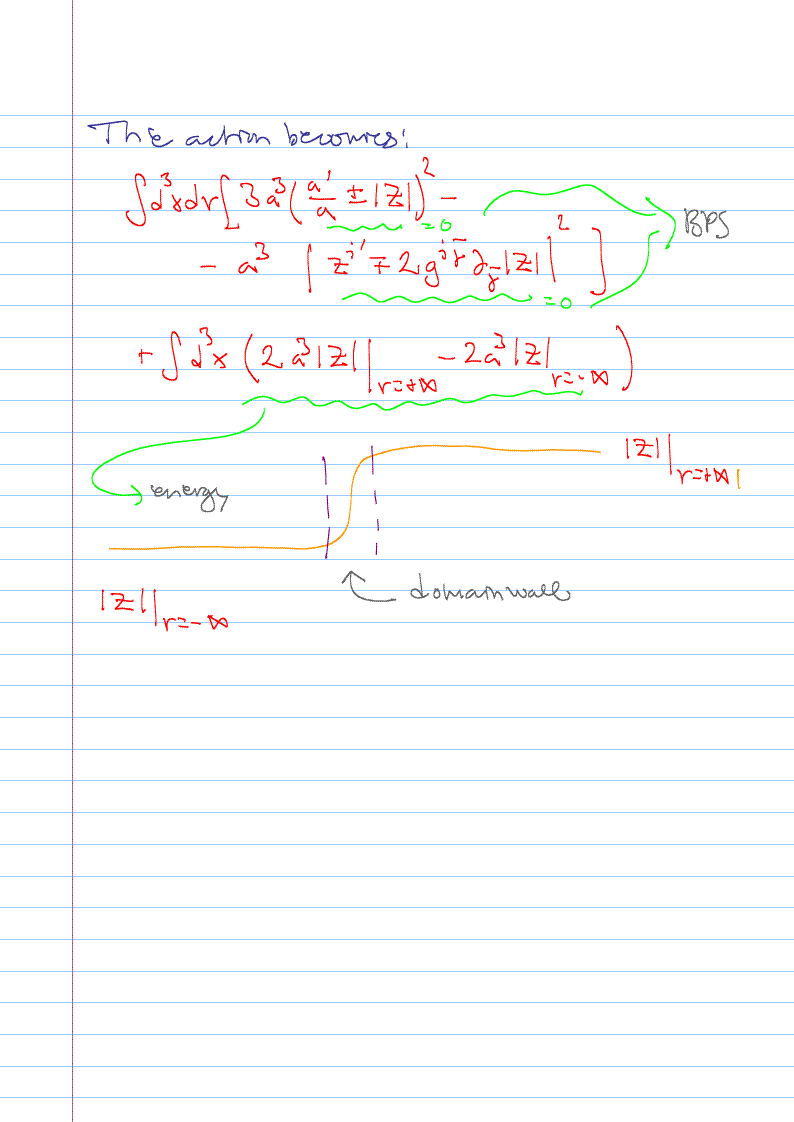 The action becomes:
∫d³xdr[3a³(a'/a ± |Z|)² −
=0
BPS
− a³ |z^{i'} ∓ 2g^{i\bar{j}}∂_{\bar{j}}|Z||²]
=0
+ ∫d³x (2a³|Z||_{r=+∞} − 2a³|Z||_{r=−∞})
|Z||_{r=+∞}
energy
domain wall
|Z||_{r=−∞}